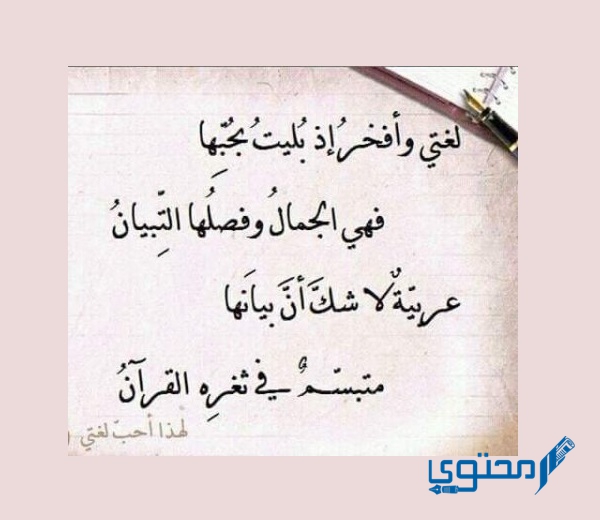 لغتي وأفخرُ إذ بُليتُ بحُبِّها
فهي الجمالُ وفصلُها التِّبيانُ
عربيّةٌ لا شكَّ أنَّ بيانَها
متبسّمٌ في ثغرِه القرآنُ
لهذا أحبّ لغتي
محتوى